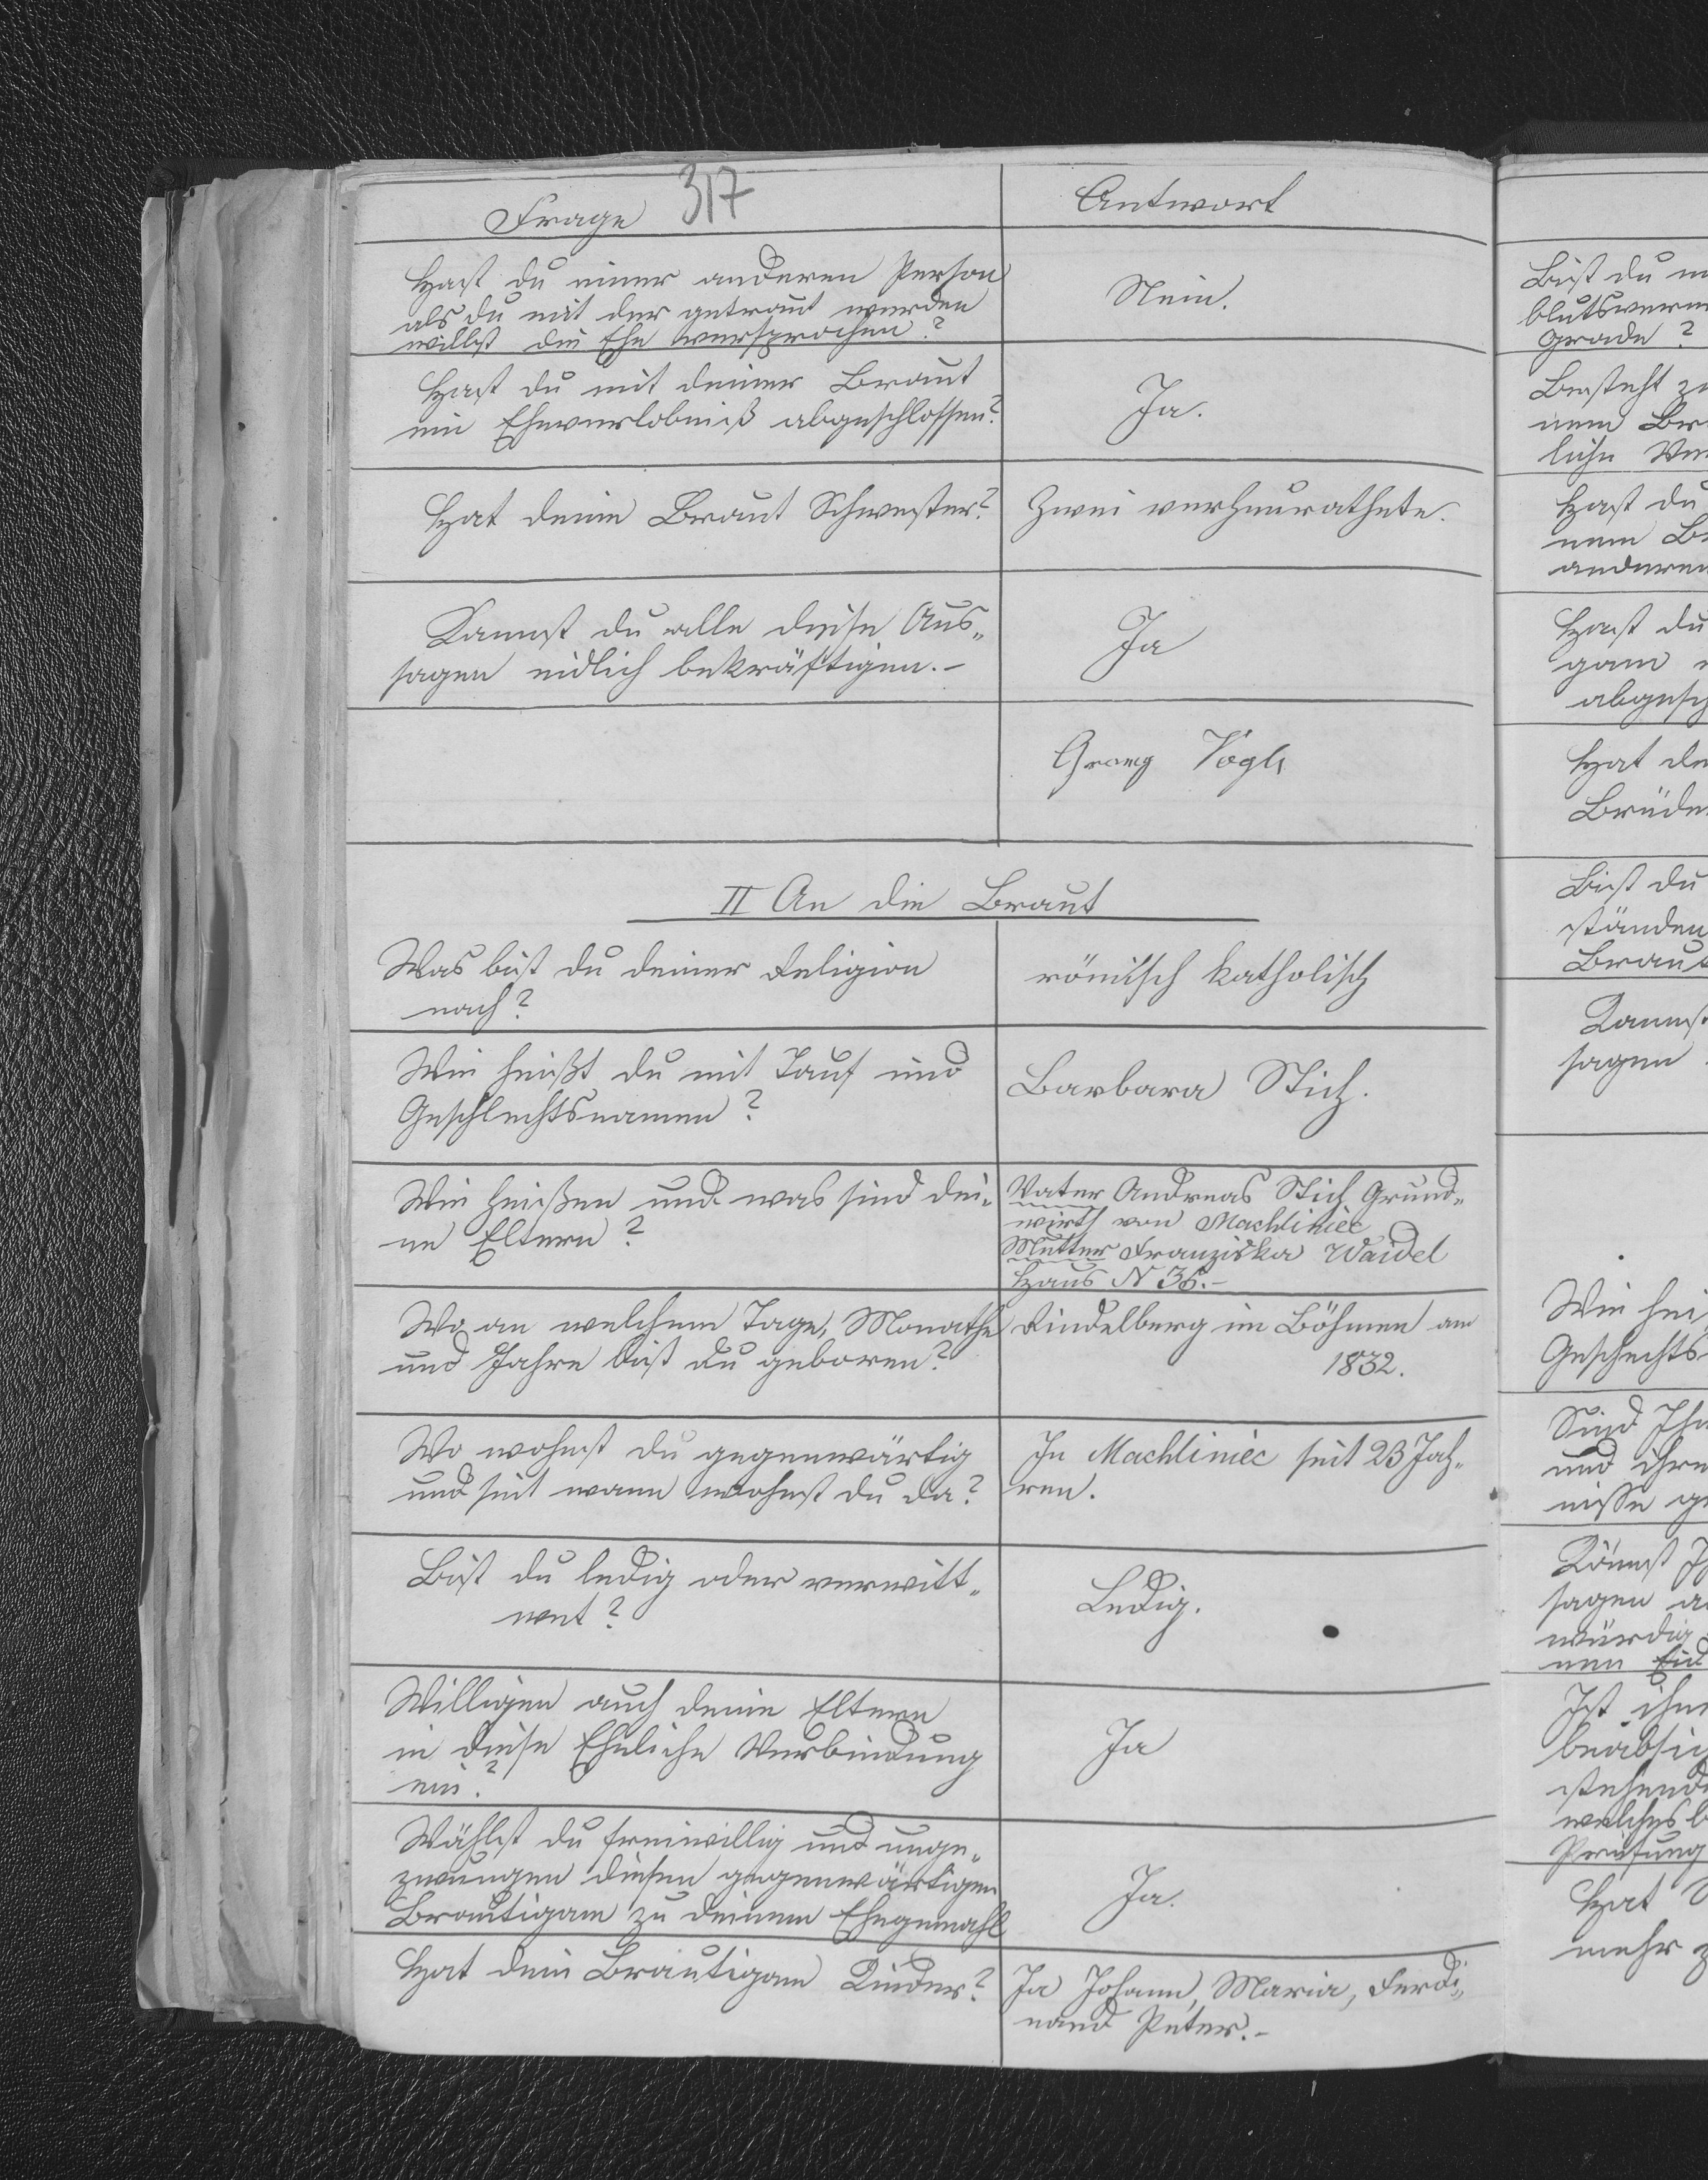 317
Frage
Antwort
Hast du einer anderen Person
als du mit der getraut werden
willst die Ehe versprochen?
Nein.
Hast du mit deiner Braut
ein Eheverlobniß abgeschlossen?
Ja.
Hat deine Braut Schwester?
Zwei verheurathete.
Kannst du alle diese Aus„
sagen eidlich bekräftigen.-
Ja
Georg Vogl
II An die Braut
Was bist du deiner Religion
nach?
römisch katholisch
Wie heißt du mit Tauf und
Geschlechtsnamen?
Barbara Stich.
Wie heißen und was sind dei„
ne Eltern?
Vater Andreas Stich Grund„
wirth von Machliniec
Mutter Franziska Waidel
Haus N 36.-
Wo an welchem Tage, Monathe
und Jahre bist du geboren?
Rindelberg in Böhmen am
1832.
Wo wohnst du gegenwärtig
und seit wann wohnst du da?
In Machliniec seit 23 Jah„
ren.
Bist du ledig oder verwitt„
wet?
Ledig.
Willigen auch deine Eltern
in diese Eheliche Verbindung
ein?
Ja
Wählst du freiwillig und unge„
zwungen diesen gegenwärtigen
Bräutigam zu deinem Ehegemahl
Ja.
Hat dein Bräutigam Kinder?
Ja Johann, Maria, Ferdi„
nand Peter.-
Bist du
Grade?
Besteht
nem
Hast du
nem
anderen
Hast du
gam
Hat
Brüder
Bist du
ständen
Braut
Kannst
sagen
Wie
Geschechts
Sind
und ihre
nisse
Könnt
sagen
würdig
nen Eid
Ist ihnen
stehende
welches
Prüfung
Hat
mehr